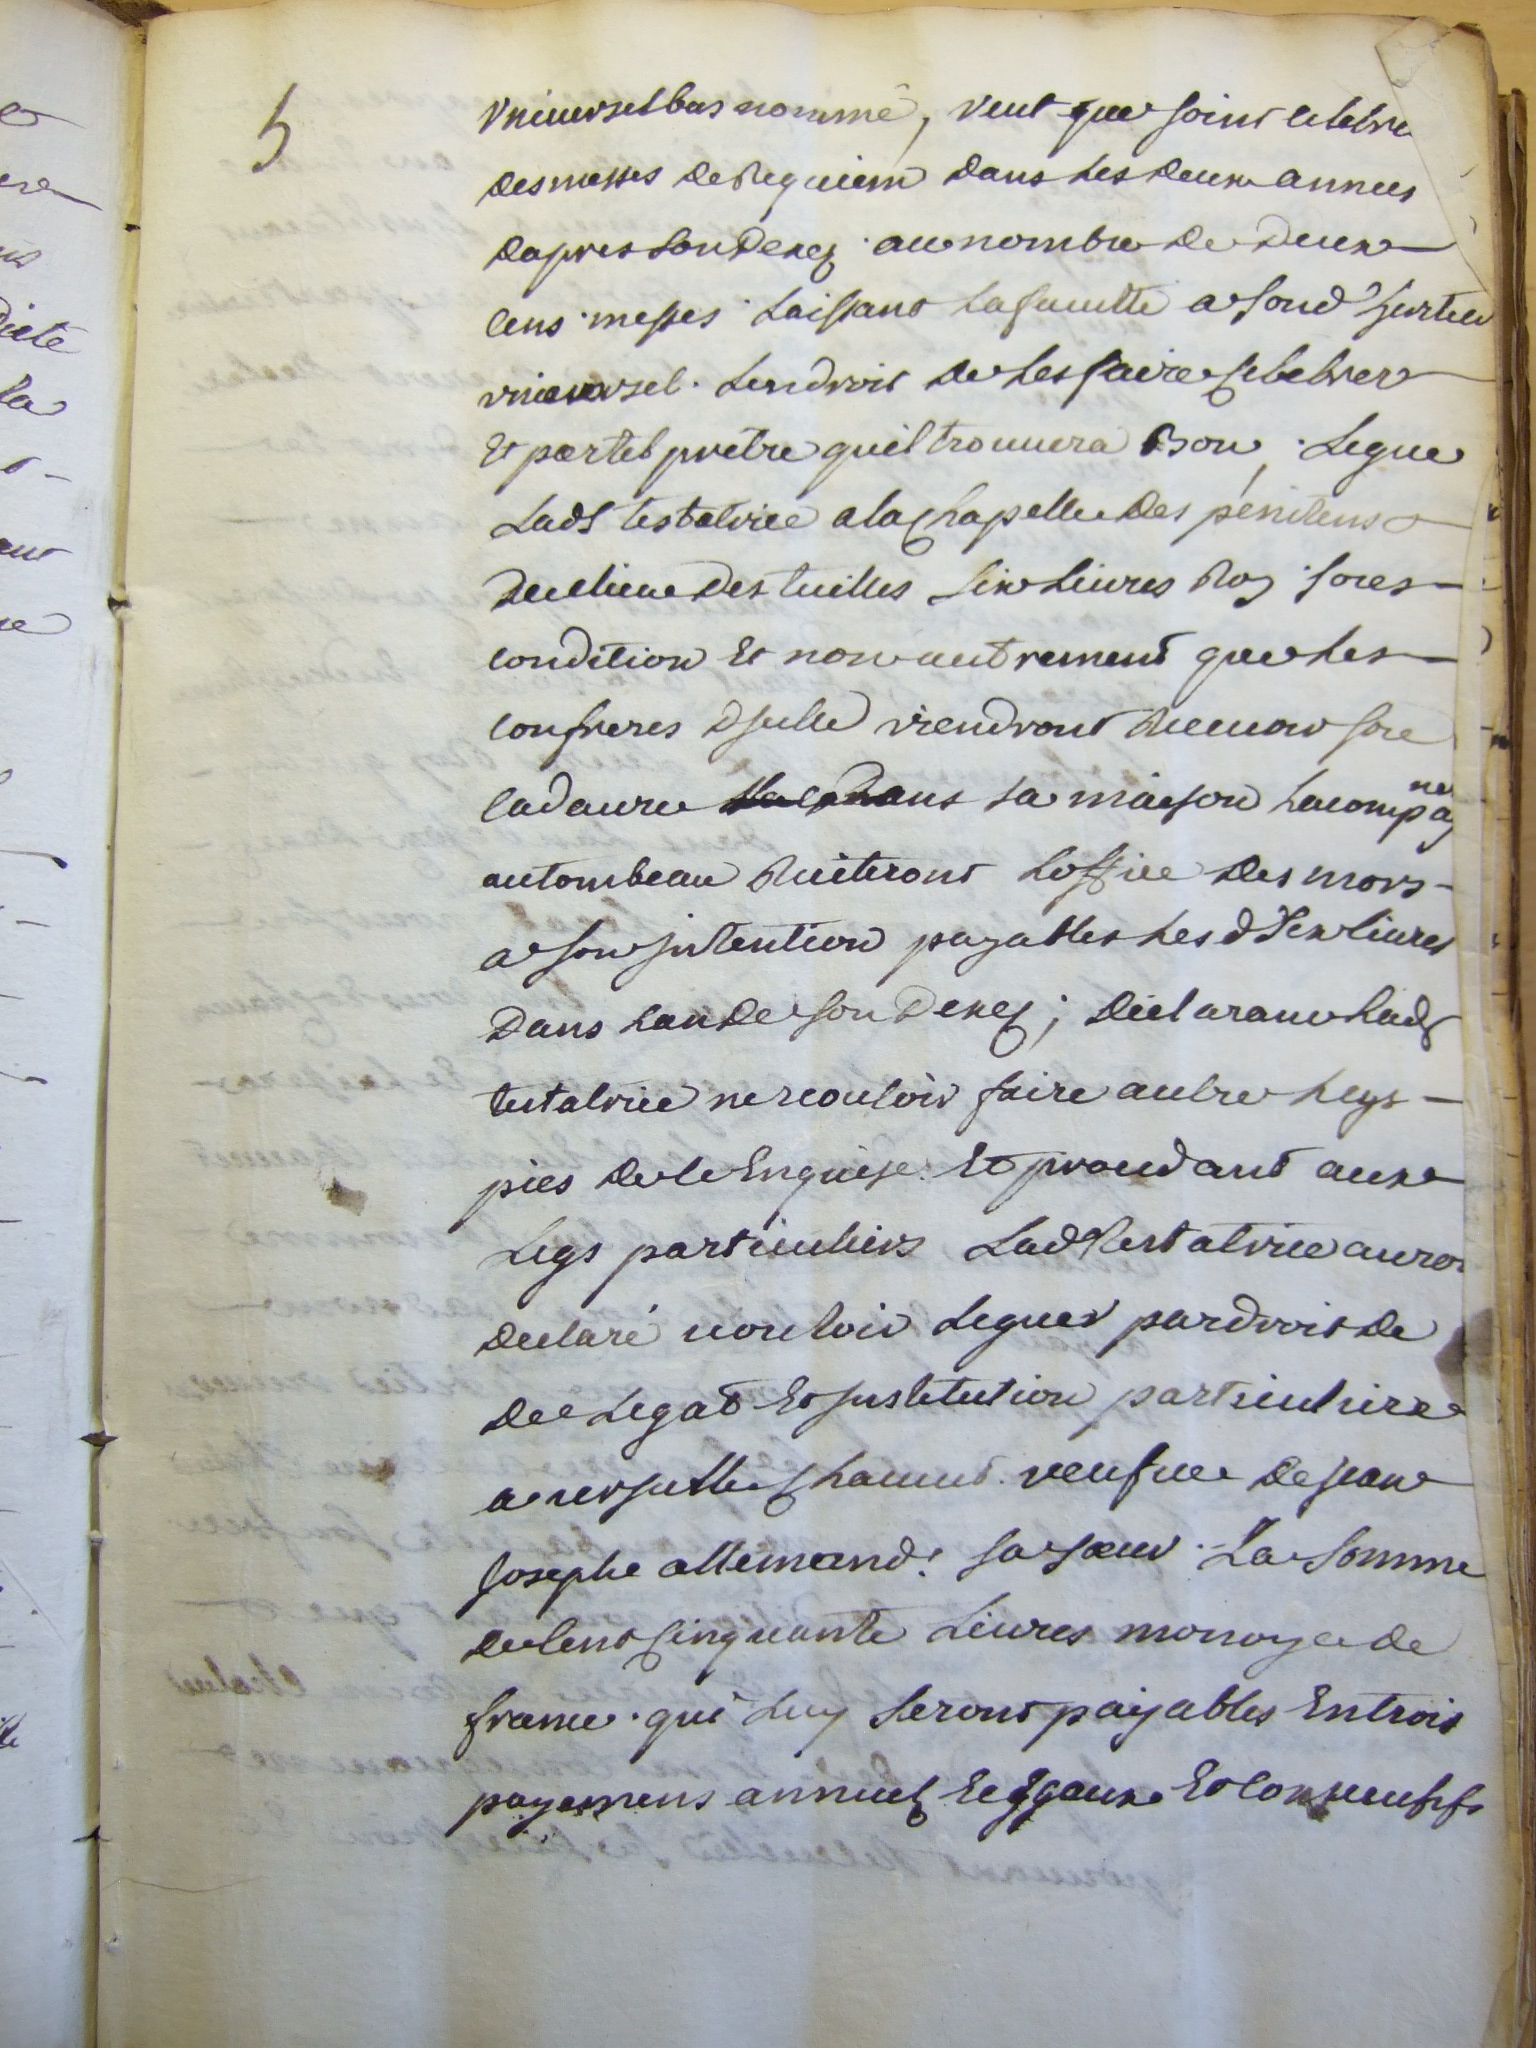 5
vniuersel bas nommé, veut que soint celebre
des messes de Requiem dans les deux annees
dapres son Decez au nombre de Deux
cens messes laissant la faculte a sond heritier
vniuersel lendroit de les faire Celebrer
Et par tel prètre quil trouuera Bon, Legue
Lad testatrice a la Chapelle Des penitens
du lieu des tuilles six liures Roy soues
condition Et non autrement que les
confreres dicelle viendront son
cadavre dans sa maison lacompagne
au tombeau Reciteront Loffice des mors
a son intention payables les d six liures
Dans lan de son Decez; declarant Lad
testatrice ne vouloir faire autre legs
pies de le Enquise Et procedant aux
Legs particuliers Lad testatrice auroit
declaré vouloir Leguer par droit de
de Legat Et institution particuliere
a Chauuet veufue de jean
Josephe allemand sa soeur La Somme
de Cent Cinquante Liures monoye de
france qui Luy Seront payables En trois
payemens annuelz Et Egaux Et consecutifs